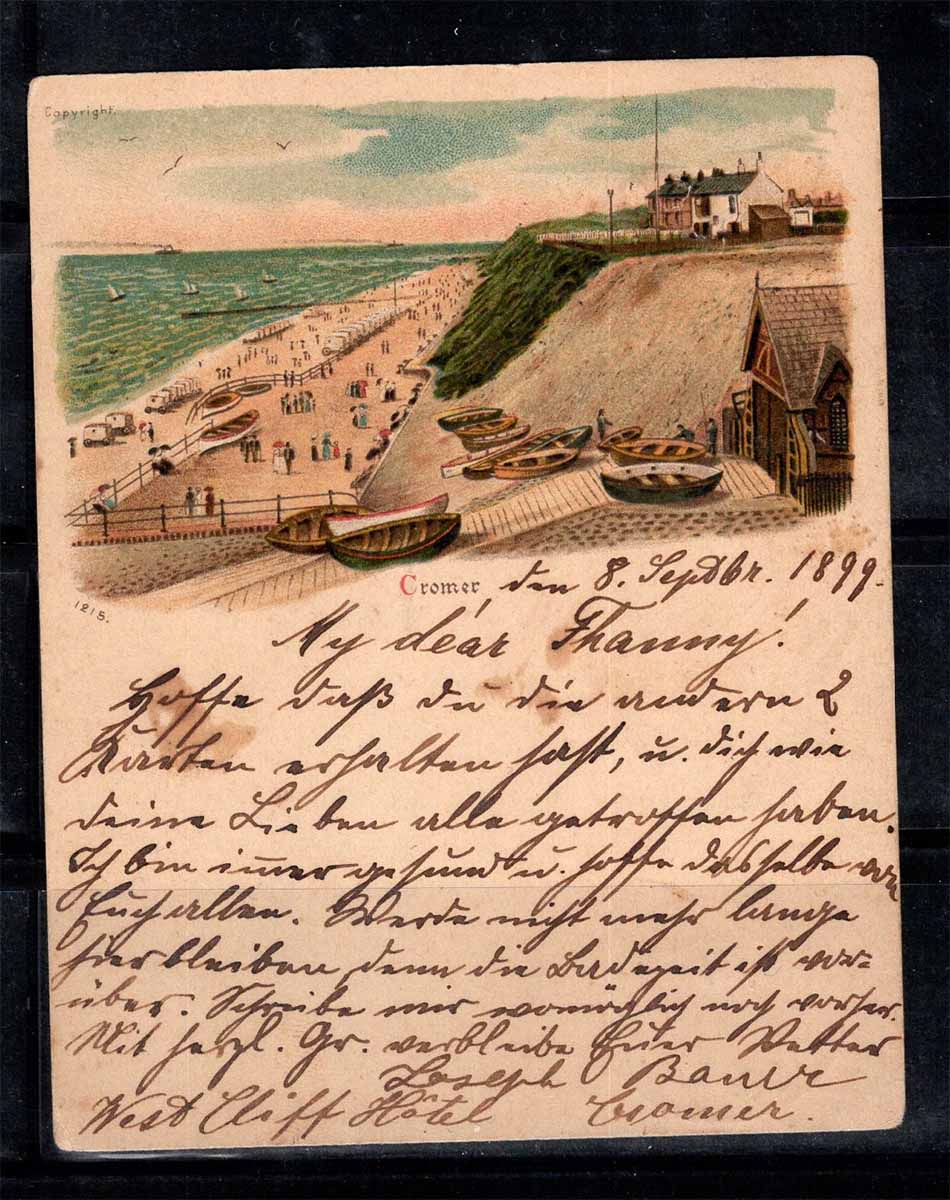 Copyright.
Cromer den 8. Septbr. 1899.
1215.
My déar Fhanny!
Hoffe daß du die andern 2
Karten erhalten hast, u. dich wie
deine Lieben alle getroffen haben.
Ich bin im̅er gesund u. hoffe dasselbe von
Euch allen. Werde nicht mehr lange
hier bleiben, denn die Badezeit ist vor=
über. Schreibe mir womöglich noch vorher.
Mit herzl. Gr. verbleibe Euer Vetter
Joseph Bauer
West Cliff Hôtel Cromer.